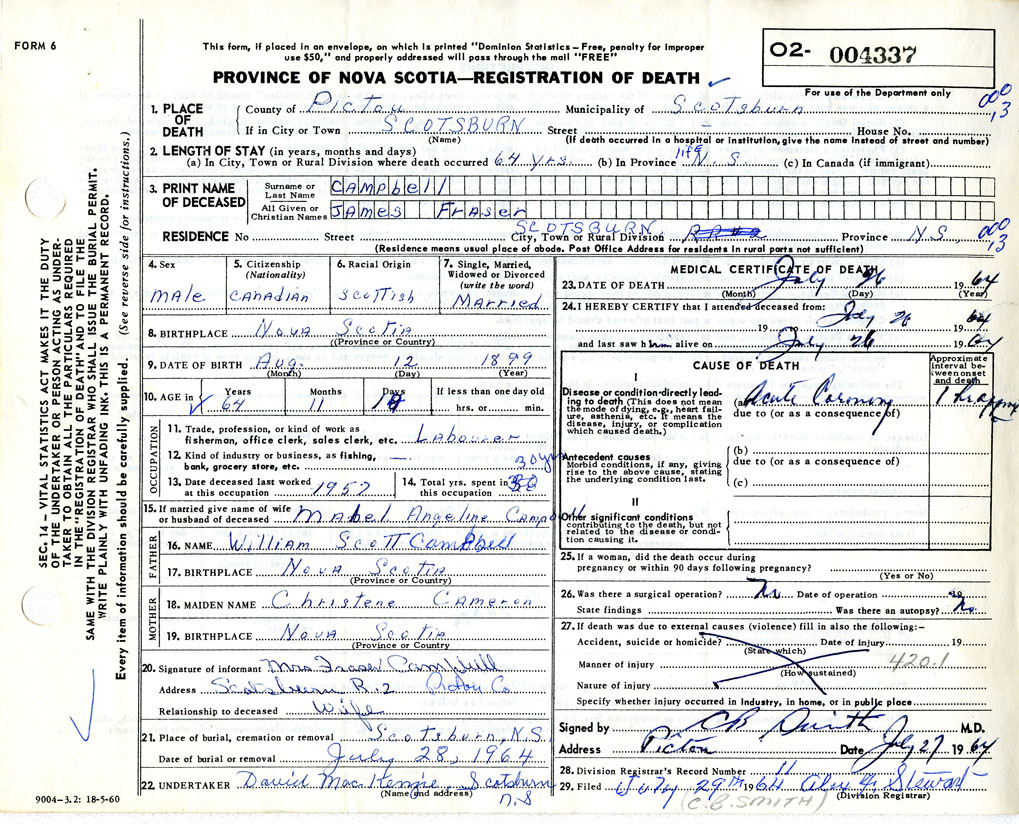 FORM 6
This form, if placed in an envelope, on which is printed "Dominion Statistics – Free, penalty for improper
use $50," and properly addressed will pass through the mail "FREE"
PROVINCE OF NOVA SCOTIA—REGISTRATION OF DEATH ✓
O2- 004337
For use of the Department only
000
13
1. PLACE OF DEATH
County of Pictou Municipality of Scotsburn
If in City or Town SCOTSBURN Street – House No.
(Name) (If death occurred in a hospital or institution, give the name instead of street and number)
2. LENGTH OF STAY (in years, months and days)
(a) In City, Town or Rural Division where death occurred 64 yrs. (b) In Province life N.S. (c) In Canada (if immigrant)
3. PRINT NAME OF DECEASED
Surname or Last Name CAMPbell
All Given or Christian Names JAMES Fraser
RESIDENCE No Street SCOTSBURN, City, Town or Rural Division Province N.S.
000
13
(Residence means usual place of abode. Post Office Address for residents in rural parts not sufficient)
4. Sex
male
5. Citizenship
(Nationality)
Canadian
6. Racial Origin
Scottish
7. Single, Married,
Widowed or Divorced
(write the word)
Married
8. BIRTHPLACE Nova Scotia
(Province or Country)
9. DATE OF BIRTH Aug. 12 1899
(Month) (Day) (Year)
10. AGE in Years Months Days If less than one day old
✓ 64 11 14 hrs. or min.
OCCUPATION
11. Trade, profession, or kind of work as
fisherman, office clerk, sales clerk, etc. Labourer
12. Kind of industry or business, as fishing,
bank, grocery store, etc. —
13. Date deceased last worked
at this occupation 1957
14. Total yrs. spent in
this occupation 30 yrs
15. If married give name of wife
or husband of deceased Mabel Angeline Campbell
FATHER
16. NAME William Scott Campbell
17. BIRTHPLACE Nova Scotia
(Province or Country)
MOTHER
18. MAIDEN NAME Christene Cameron
19. BIRTHPLACE Nova Scotia
(Province or Country)
20. Signature of informant Mrs Fraser Campbell
Address Scotsburn R.2 Pictou Co
Relationship to deceased Wife
21. Place of burial, cremation or removal Scotsburn, N.S.
Date of burial or removal July 28, 1964
22. UNDERTAKER David MacKenzie Scotsburn
(Name and address) N.S
9004–3.2: 18-5-60
MEDICAL CERTIFICATE OF DEATH
23. DATE OF DEATH July 26 1964
(Month) (Day) (Year)
24. I HEREBY CERTIFY that I attended deceased from: July 26
19 19 64
and last saw him alive on July 26 1964
CAUSE OF DEATH
Approximate
interval between
onset
and death
I
Disease or condition directly lead-
ing to death (This does not mean
the mode of dying, e.g., heart fail-
ure, asthenia, etc. It means the
disease, injury, or complication
which caused death.)
(a) Acute Coronary
due to (or as a consequence of)
1 hr approx
Antecedent causes
Morbid conditions, if any, giving
rise to the above cause, stating
the underlying condition last.
(b)
due to (or as a consequence of)
(c)
II
Other significant conditions
contributing to the death, but not
related to the disease or condi-
tion causing it.
25. If a woman, did the death occur during
pregnancy or within 90 days following pregnancy?
(Yes or No)
26. Was there a surgical operation? No Date of operation 19
State findings Was there an autopsy? No
27. If death was due to external causes (violence) fill in also the following:–
Accident, suicide or homicide? Date of injury 19
(State which)
Manner of injury 420.1
(How sustained)
Nature of injury
Specify whether injury occurred in industry, in home, or in public place
Signed by CB Smith M.D.
Address Pictou Date July 27 1964
28. Division Registrar's Record Number 11
29. Filed July 29th 1964 Alex Stewart
(Division Registrar)
(C.B. SMITH)
SEC. 14 – VITAL STATISTICS ACT MAKES IT THE DUTY
OF THE UNDERTAKER OR PERSON ACTING AS UNDER-
TAKER TO OBTAIN ALL THE PARTICULARS REQUIRED
IN THE "REGISTRATION OF DEATH" AND TO FILE THE
SAME WITH THE DIVISION REGISTRAR WHO SHALL ISSUE THE BURIAL PERMIT.
WRITE PLAINLY WITH UNFADING INK. THIS IS A PERMANENT RECORD.
Every item of information should be carefully supplied. (See reverse side for instructions.)